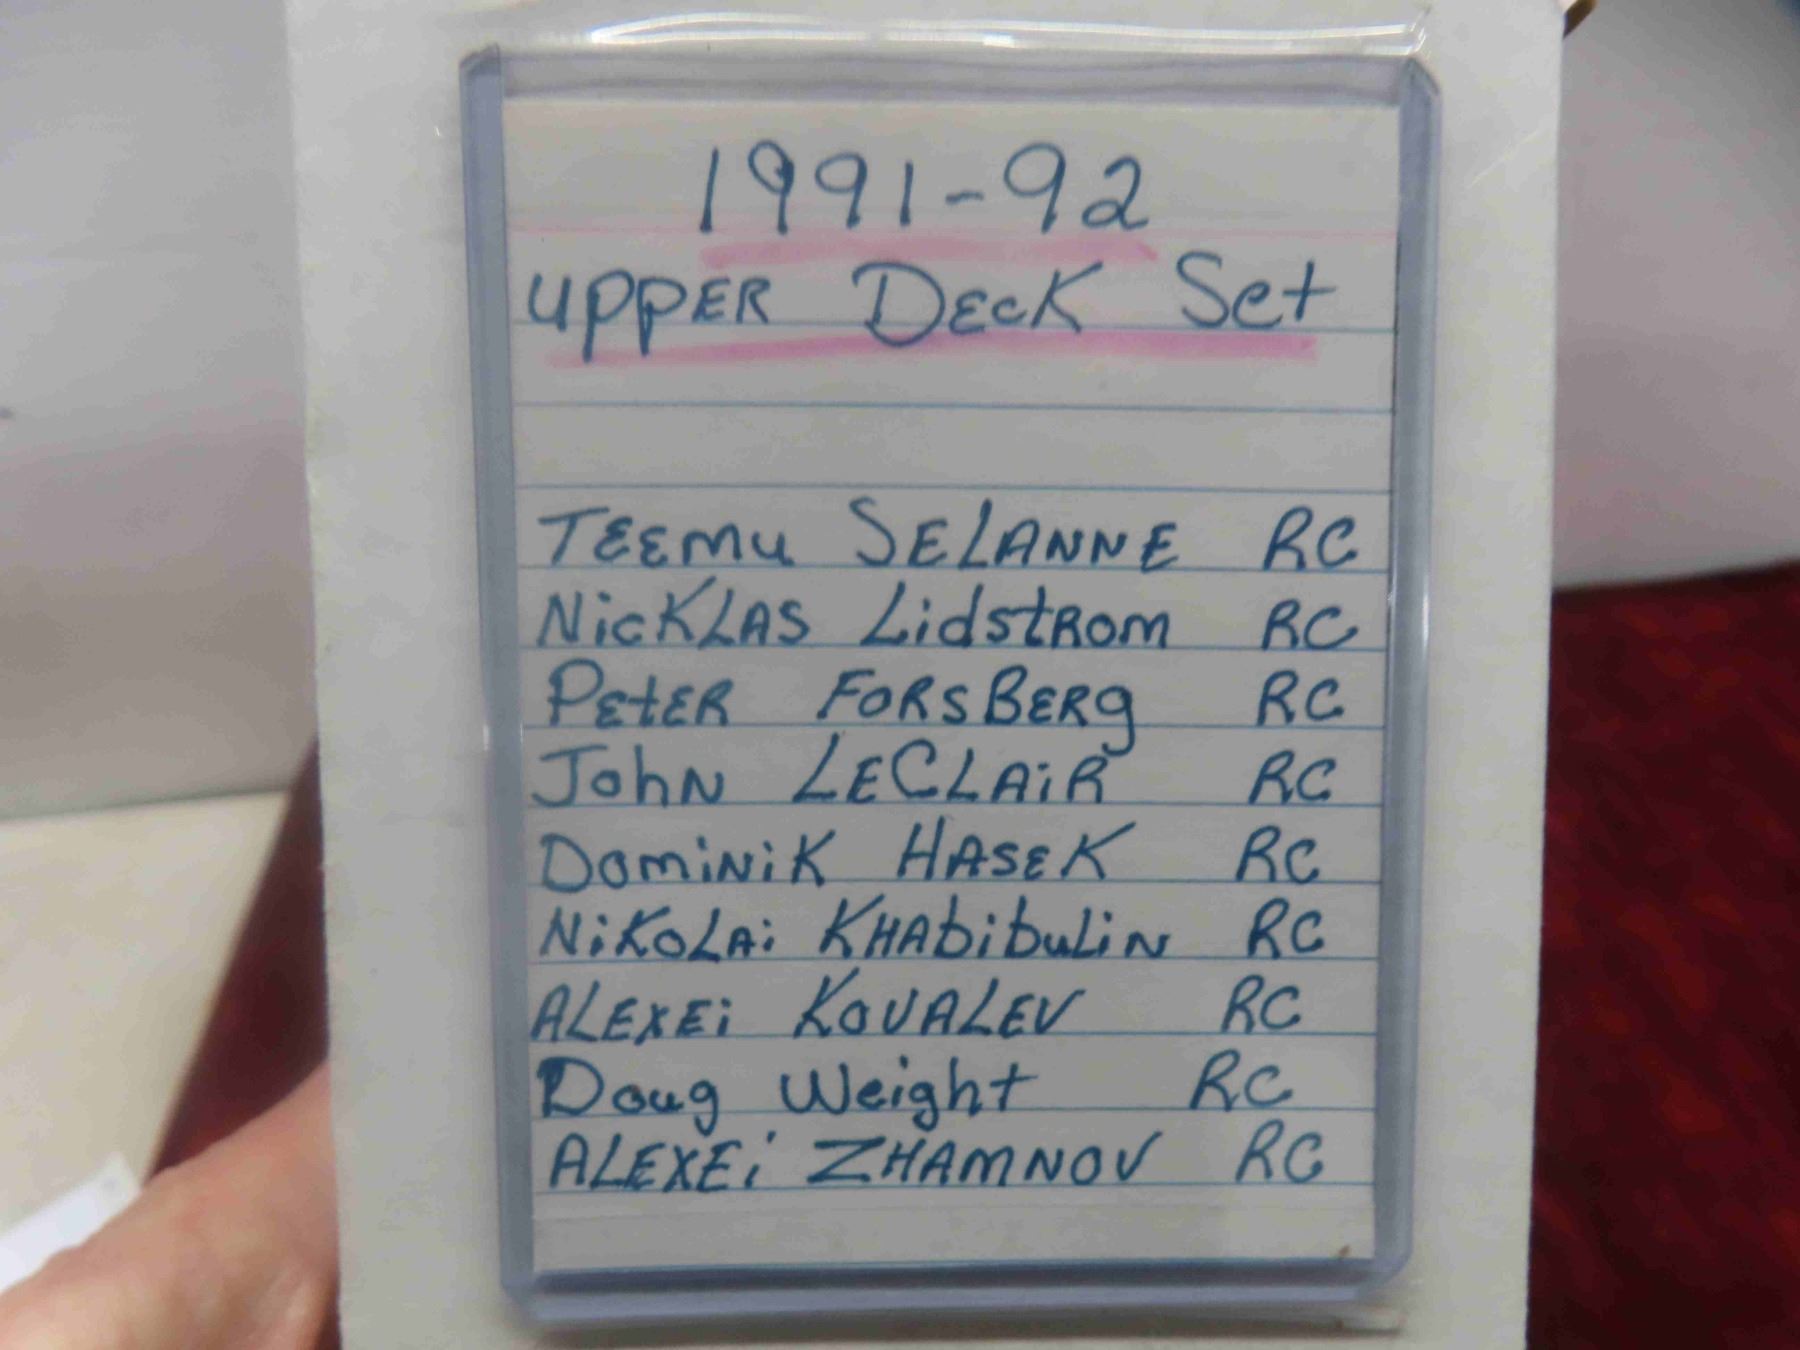 1991-92
UPPER DECK Set
TEEMU SELANNE RC
NicKLAS LidstROM RC
PEtER FORSBERg RC
JohN LECLAiR RC
DOMiNiK HASEK RC
NiKOLAi KHAbibuLiN RC
ALEXEi KOVALEV RC
Doug Weight RC
ALEXEi ZHAMNOV RC